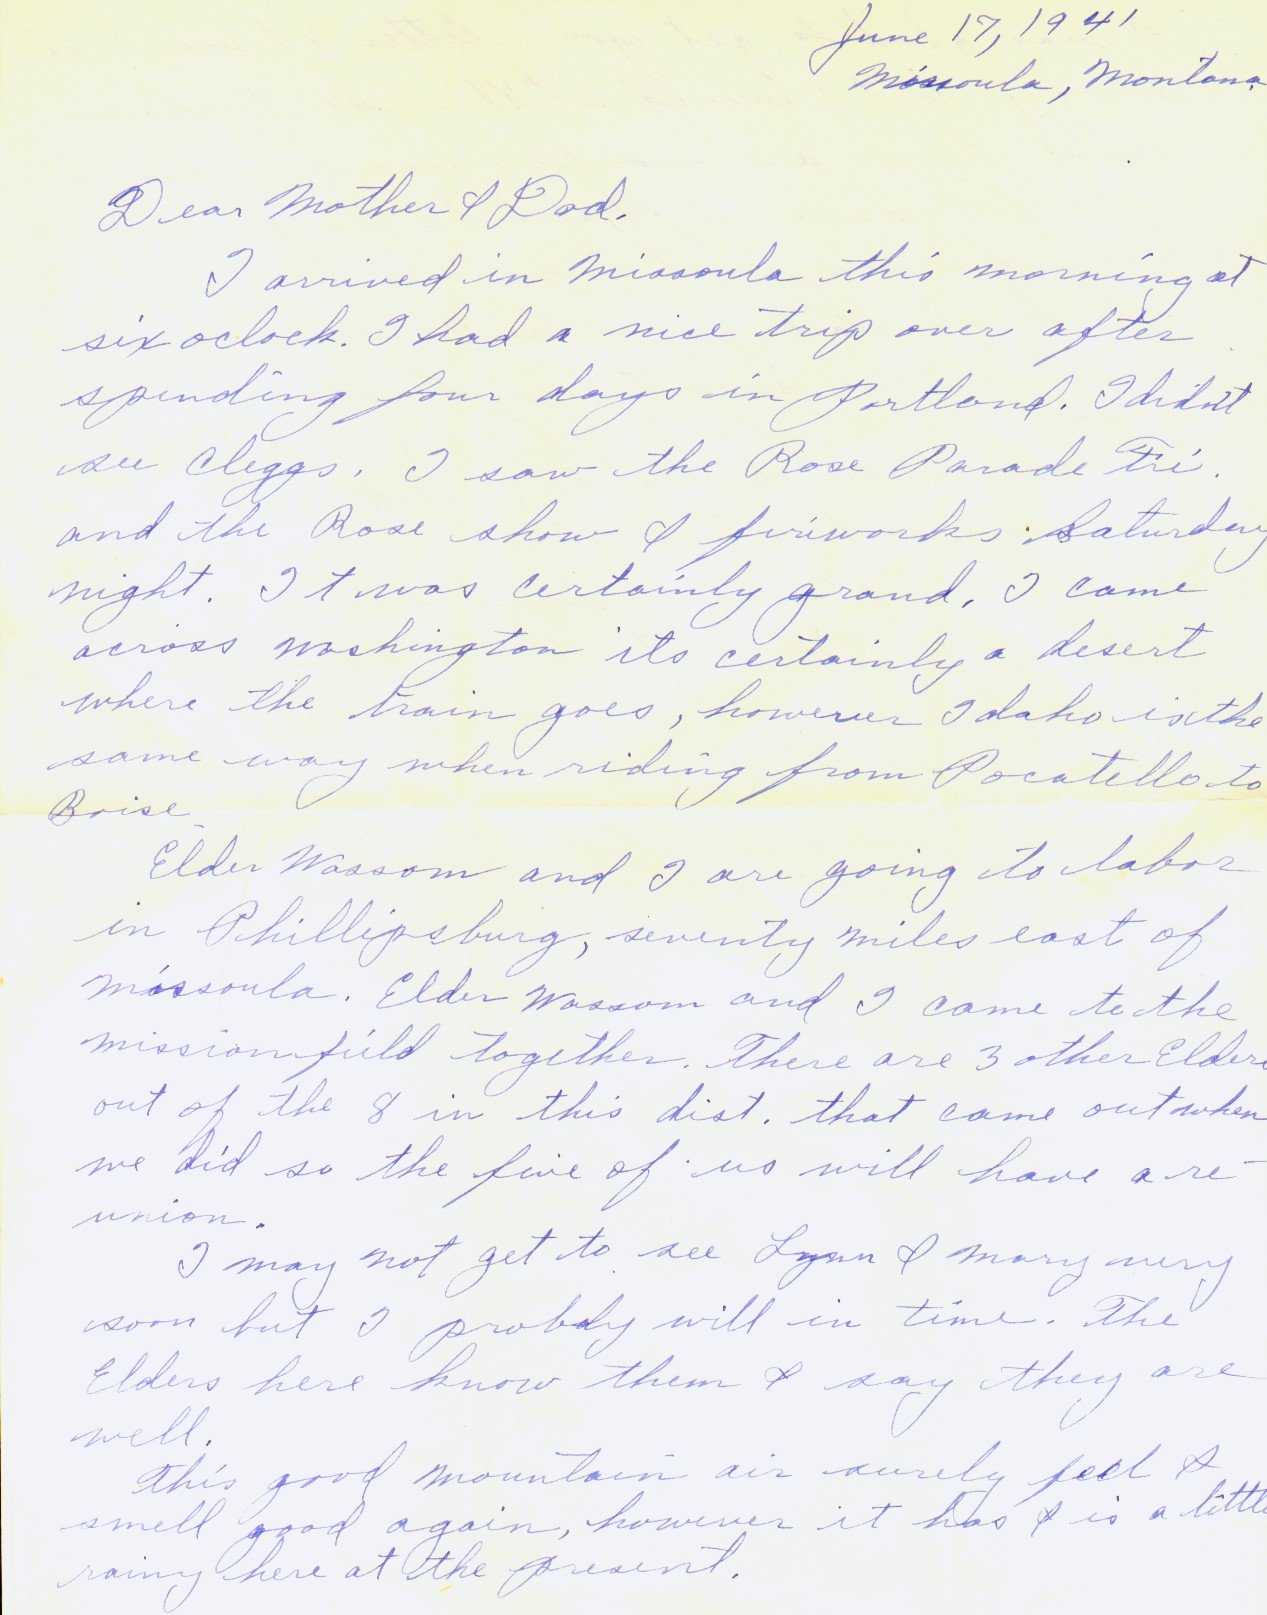 June 17, 1941
Missoula, Montana.
Dear Mother & Dad.
I arrived in Missoula this morning at
six oclock. I had a nice trip over after
spending four days in Portland. I didn't
see Cleggs. I saw the Rose Parade Fri.
and the Rose show & fireworks Saturday
night. It was certainly grand. I came
across Washington its certainly a desert
where the train goes, however Idaho is the
same way when riding from Pocatello to
Boise.
Elder Wassom and I are going to labor
in Phillipsburg, seventy miles east of
Missoula. Elder Wassom and I came to the
mission field together. There are 3 other Elders
out of the 8 in this dist. that came out when
we did so the five of us will have a re-
union.
I may not get to see Lynn & Mary very
soon but I probaly will in time. The
Elders here know them & say they are
well.
This good mountain air surely feel &
smell good again, however it has & is a little
rainy here at the present.